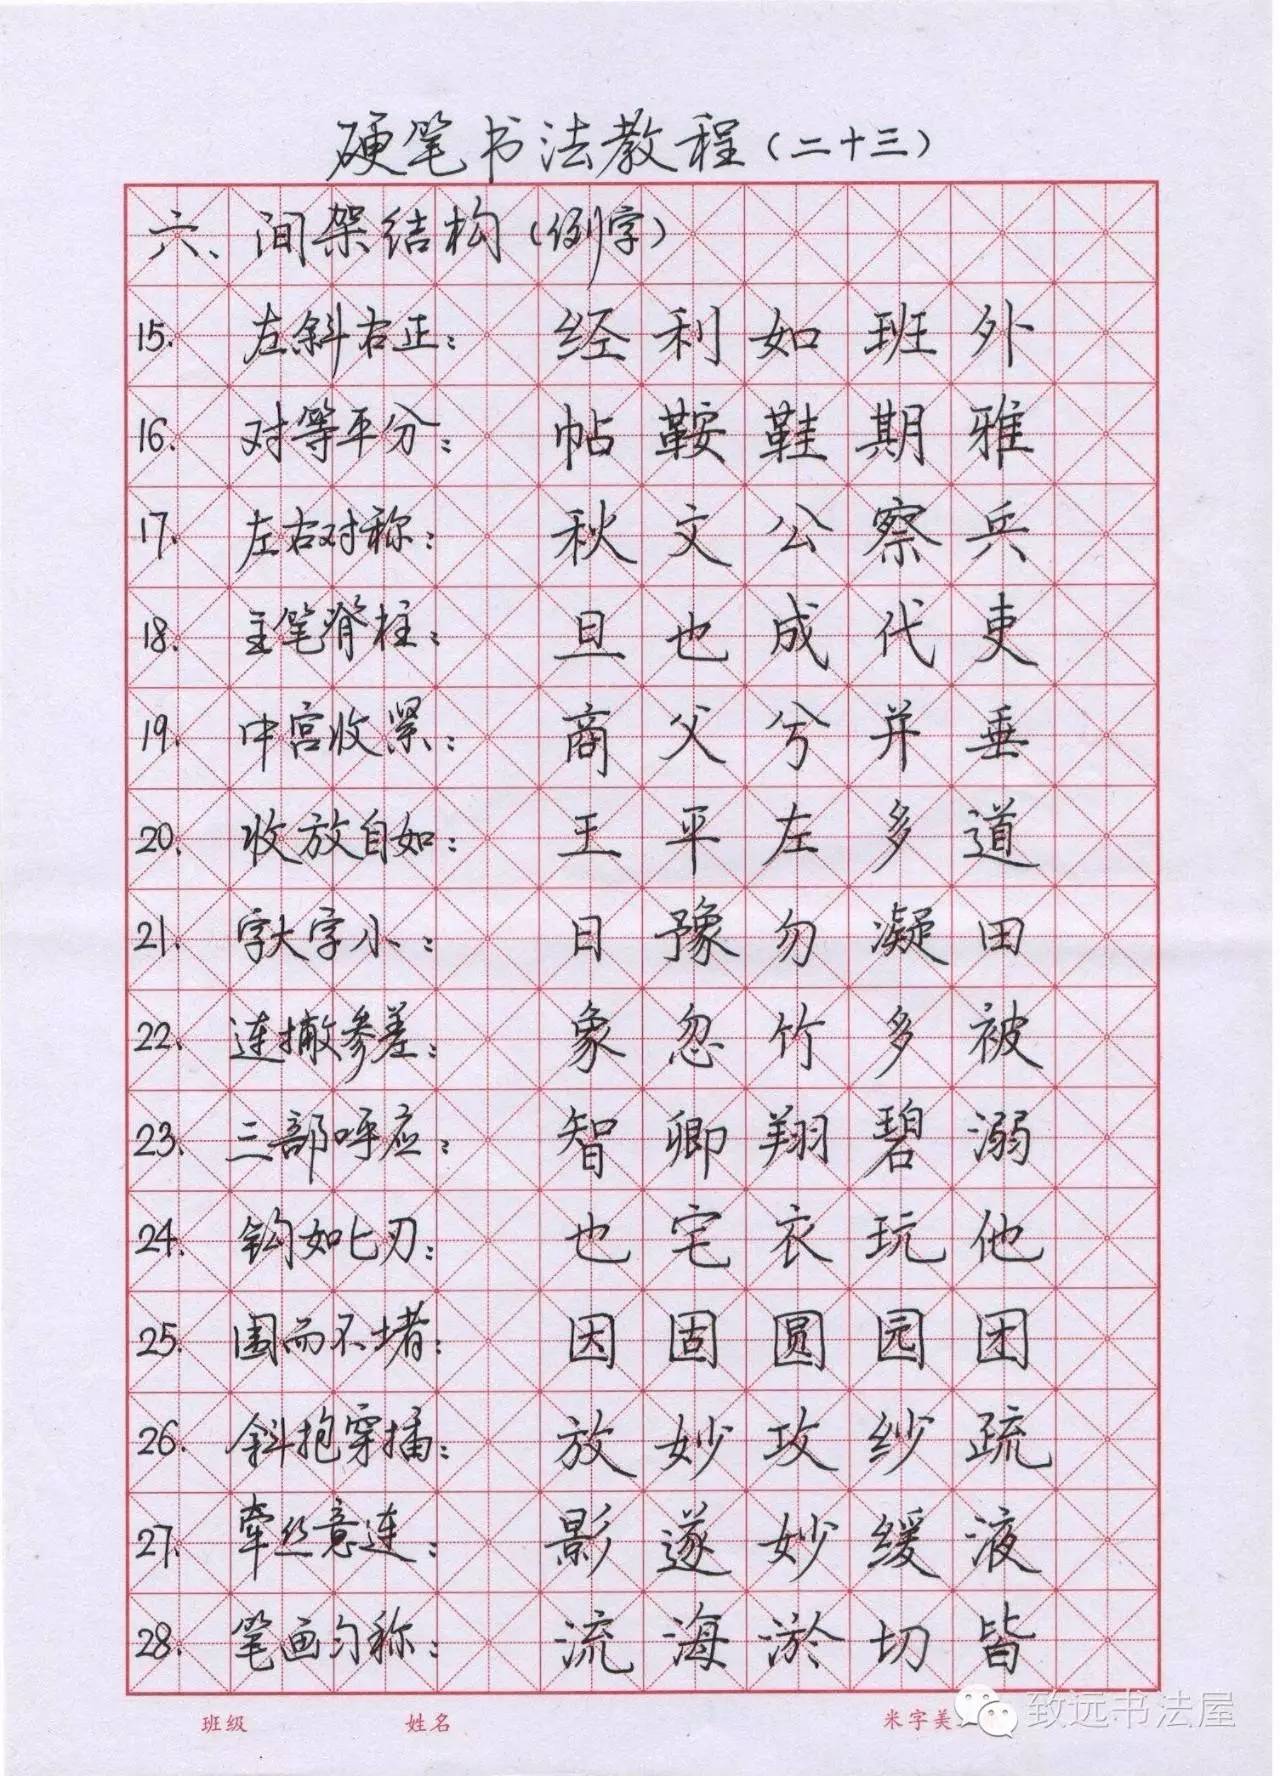 硬笔书法教程(二十三)
六、间架结构(例字)
15. 左斜右正: 经利如班外
16. 对等平分: 帖鞍鞋期雅
17. 左右对称: 秋文公察兵
18. 主笔脊柱: 旦也成代吏
19. 中宫收紧: 商父兮并垂
20. 收放自如: 王平左多道
21. 字大字小: 日豫勿凝田
22. 连撇参差: 象忽竹多被
23. 三部呼应: 智卿翔碧溺
24. 钩如匕刃: 也宅衣玩他
25. 围而不堵: 因固圆园团
26. 斜抱穿插: 放妙攻纱疏
27. 牵丝意连: 影遂妙缓液
28. 笔画匀称: 流海淤切皆
班级 姓名 米字美
致远书法屋